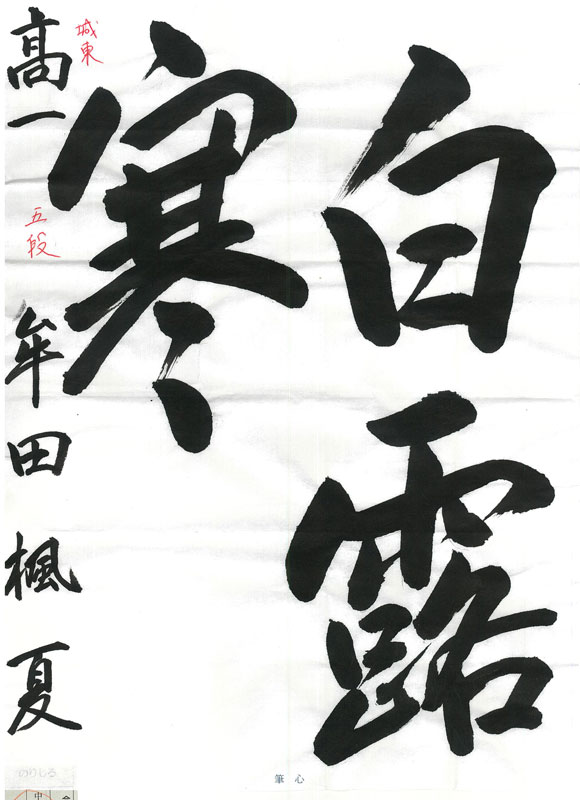 白露
寒
城東
五段
高一 牟田 楓夏
のりしろ
筆心
中